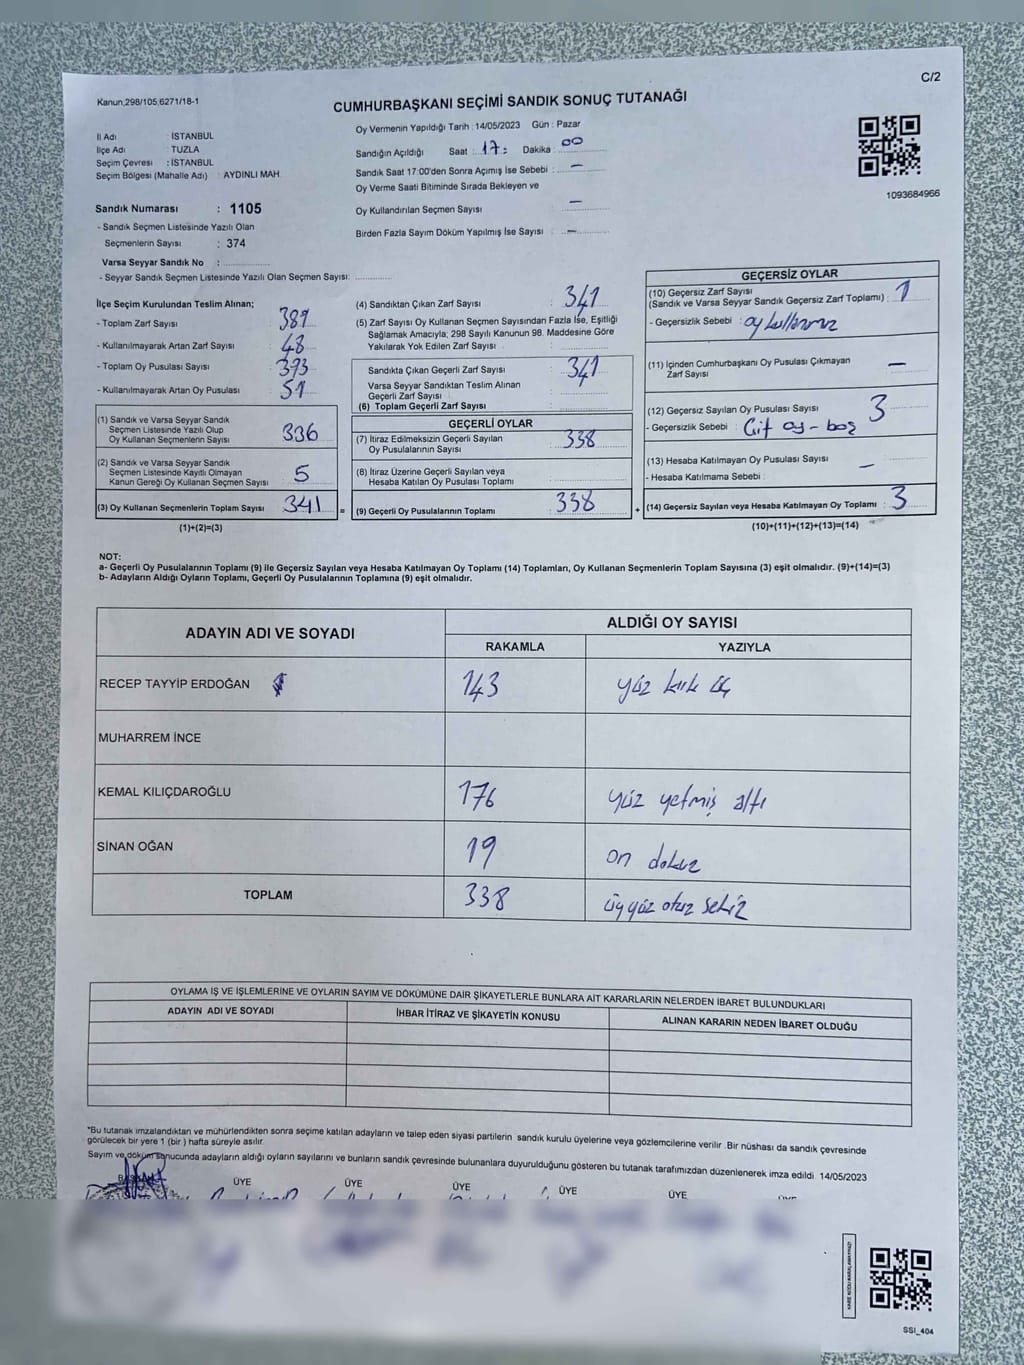 C/2
Kanun,298/105,6271/18-1
CUMHURBAŞKANI SEÇİMİ SANDIK SONUÇ TUTANAĞI
İl Adı : İSTANBUL
İlçe Adı : TUZLA
Seçim Çevresi : İSTANBUL
Seçim Bölgesi (Mahalle Adı) : AYDINLI MAH.
Oy Vermenin Yapıldığı Tarih : 14/05/2023 Gün : Pazar
Sandığın Açıldığı Saat : 17: Dakika : 00
Sandık Saat 17:00'den Sonra Açımış İse Sebebi : —
Oy Verme Saati Bitiminde Sırada Bekleyen ve
Oy Kullandırılan Seçmen Sayısı —
Birden Fazla Sayım Döküm Yapılmış İse Sayısı : —
1093684966
Sandık Numarası : 1105
- Sandık Seçmen Listesinde Yazılı Olan
Seçmenlerin Sayısı : 374
Varsa Seyyar Sandık No :
- Seyyar Sandık Seçmen Listesinde Yazılı Olan Seçmen Sayısı:
İlçe Seçim Kurulundan Teslim Alınan;
- Toplam Zarf Sayısı : 389
- Kullanılmayarak Artan Zarf Sayısı : 48
- Toplam Oy Pusulası Sayısı : 393
- Kullanılmayarak Artan Oy Pusulası : 51
(1) Sandık ve Varsa Seyyar Sandık
Seçmen Listesinde Yazılı Olup
Oy Kullanan Seçmenlerin Sayısı : 336
(2) Sandık ve Varsa Seyyar Sandık
Seçmen Listesinde Kayıtlı Olmayan
Kanun Gereği Oy Kullanan Seçmen Sayısı : 5
(3) Oy Kullanan Seçmenlerin Toplam Sayısı : 341 =
(1)+(2)=(3)
(4) Sandıktan Çıkan Zarf Sayısı : 341
(5) Zarf Sayısı Oy Kullanan Seçmen Sayısından Fazla İse, Eşitliği
Sağlamak Amacıyla; 298 Sayılı Kanunun 98. Maddesine Göre
Yakılarak Yok Edilen Zarf Sayısı :
Sandıkta Çıkan Geçerli Zarf Sayısı : 341
Varsa Seyyar Sandıktan Teslim Alınan
Geçerli Zarf Sayısı :
(6) Toplam Geçerli Zarf Sayısı :
GEÇERLİ OYLAR
(7) İtiraz Edilmeksizin Geçerli Sayılan
Oy Pusulalarının Sayısı : 338
(8) İtiraz Üzerine Geçerli Sayılan veya
Hesaba Katılan Oy Pusulası Toplamı :
(9) Geçerli Oy Pusulalarının Toplamı : 338 +
GEÇERSİZ OYLAR
(10) Geçersiz Zarf Sayısı
(Sandık ve Varsa Seyyar Sandık Geçersiz Zarf Toplamı) : 1
- Geçersizlik Sebebi : oy
(11) İçinden Cumhurbaşkanı Oy Pusulası Çıkmayan
Zarf Sayısı —
(12) Geçersiz Sayılan Oy Pusulası Sayısı : 3
- Geçersizlik Sebebi : Çift oy - boş
(13) Hesaba Katılmayan Oy Pusulası Sayısı : —
- Hesaba Katılmama Sebebi :
(14) Geçersiz Sayılan veya Hesaba Katılmayan Oy Toplamı : 3
(10)+(11)+(12)+(13)=(14)
NOT:
a- Geçerli Oy Pusulalarının Toplamı (9) ile Geçersiz Sayılan veya Hesaba Katılmayan Oy Toplamı (14) Toplamları, Oy Kullanan Seçmenlerin Toplam Sayısına (3) eşit olmalıdır. (9)+(14)=(3)
b- Adayların Aldığı Oyların Toplamı, Geçerli Oy Pusulalarının Toplamına (9) eşit olmalıdır.
ADAYIN ADI VE SOYADI
ALDIĞI OY SAYISI
RAKAMLA YAZIYLA
RECEP TAYYİP ERDOĞAN 143 yüz kırk üç
MUHARREM İNCE
KEMAL KILIÇDAROĞLU 176 yüz yetmiş altı
SİNAN OĞAN 19 on dokuz
TOPLAM 338 üçyüz otuz sekiz
OYLAMA İŞ VE İŞLEMLERİNE VE OYLARIN SAYIM VE DÖKÜMÜNE DAİR ŞİKAYETLERLE BUNLARA AİT KARARLARIN NELERDEN İBARET BULUNDUKLARI
ADAYIN ADI VE SOYADI İHBAR İTİRAZ VE ŞİKAYETİN KONUSU ALINAN KARARIN NEDEN İBARET OLDUĞU
*Bu tutanak imzalandıktan ve mühürlendikten sonra seçime katılan adayların ve talep eden siyasi partilerin sandık kurulu üyelerine veya gözlemcilerine verilir .Bir nüshası da sandık çevresinde
görülecek bir yere 1 (bir ) hafta süreyle asılır.
Sayım ve döküm sonucunda adayların aldığı oyların sayılarını ve bunların sandık çevresinde bulunanlara duyurulduğunu gösteren bu tutanak tarafımızdan düzenlenerek imza edildi 14/05/2023
ÜYE ÜYE ÜYE ÜYE ÜYE
SSI_404